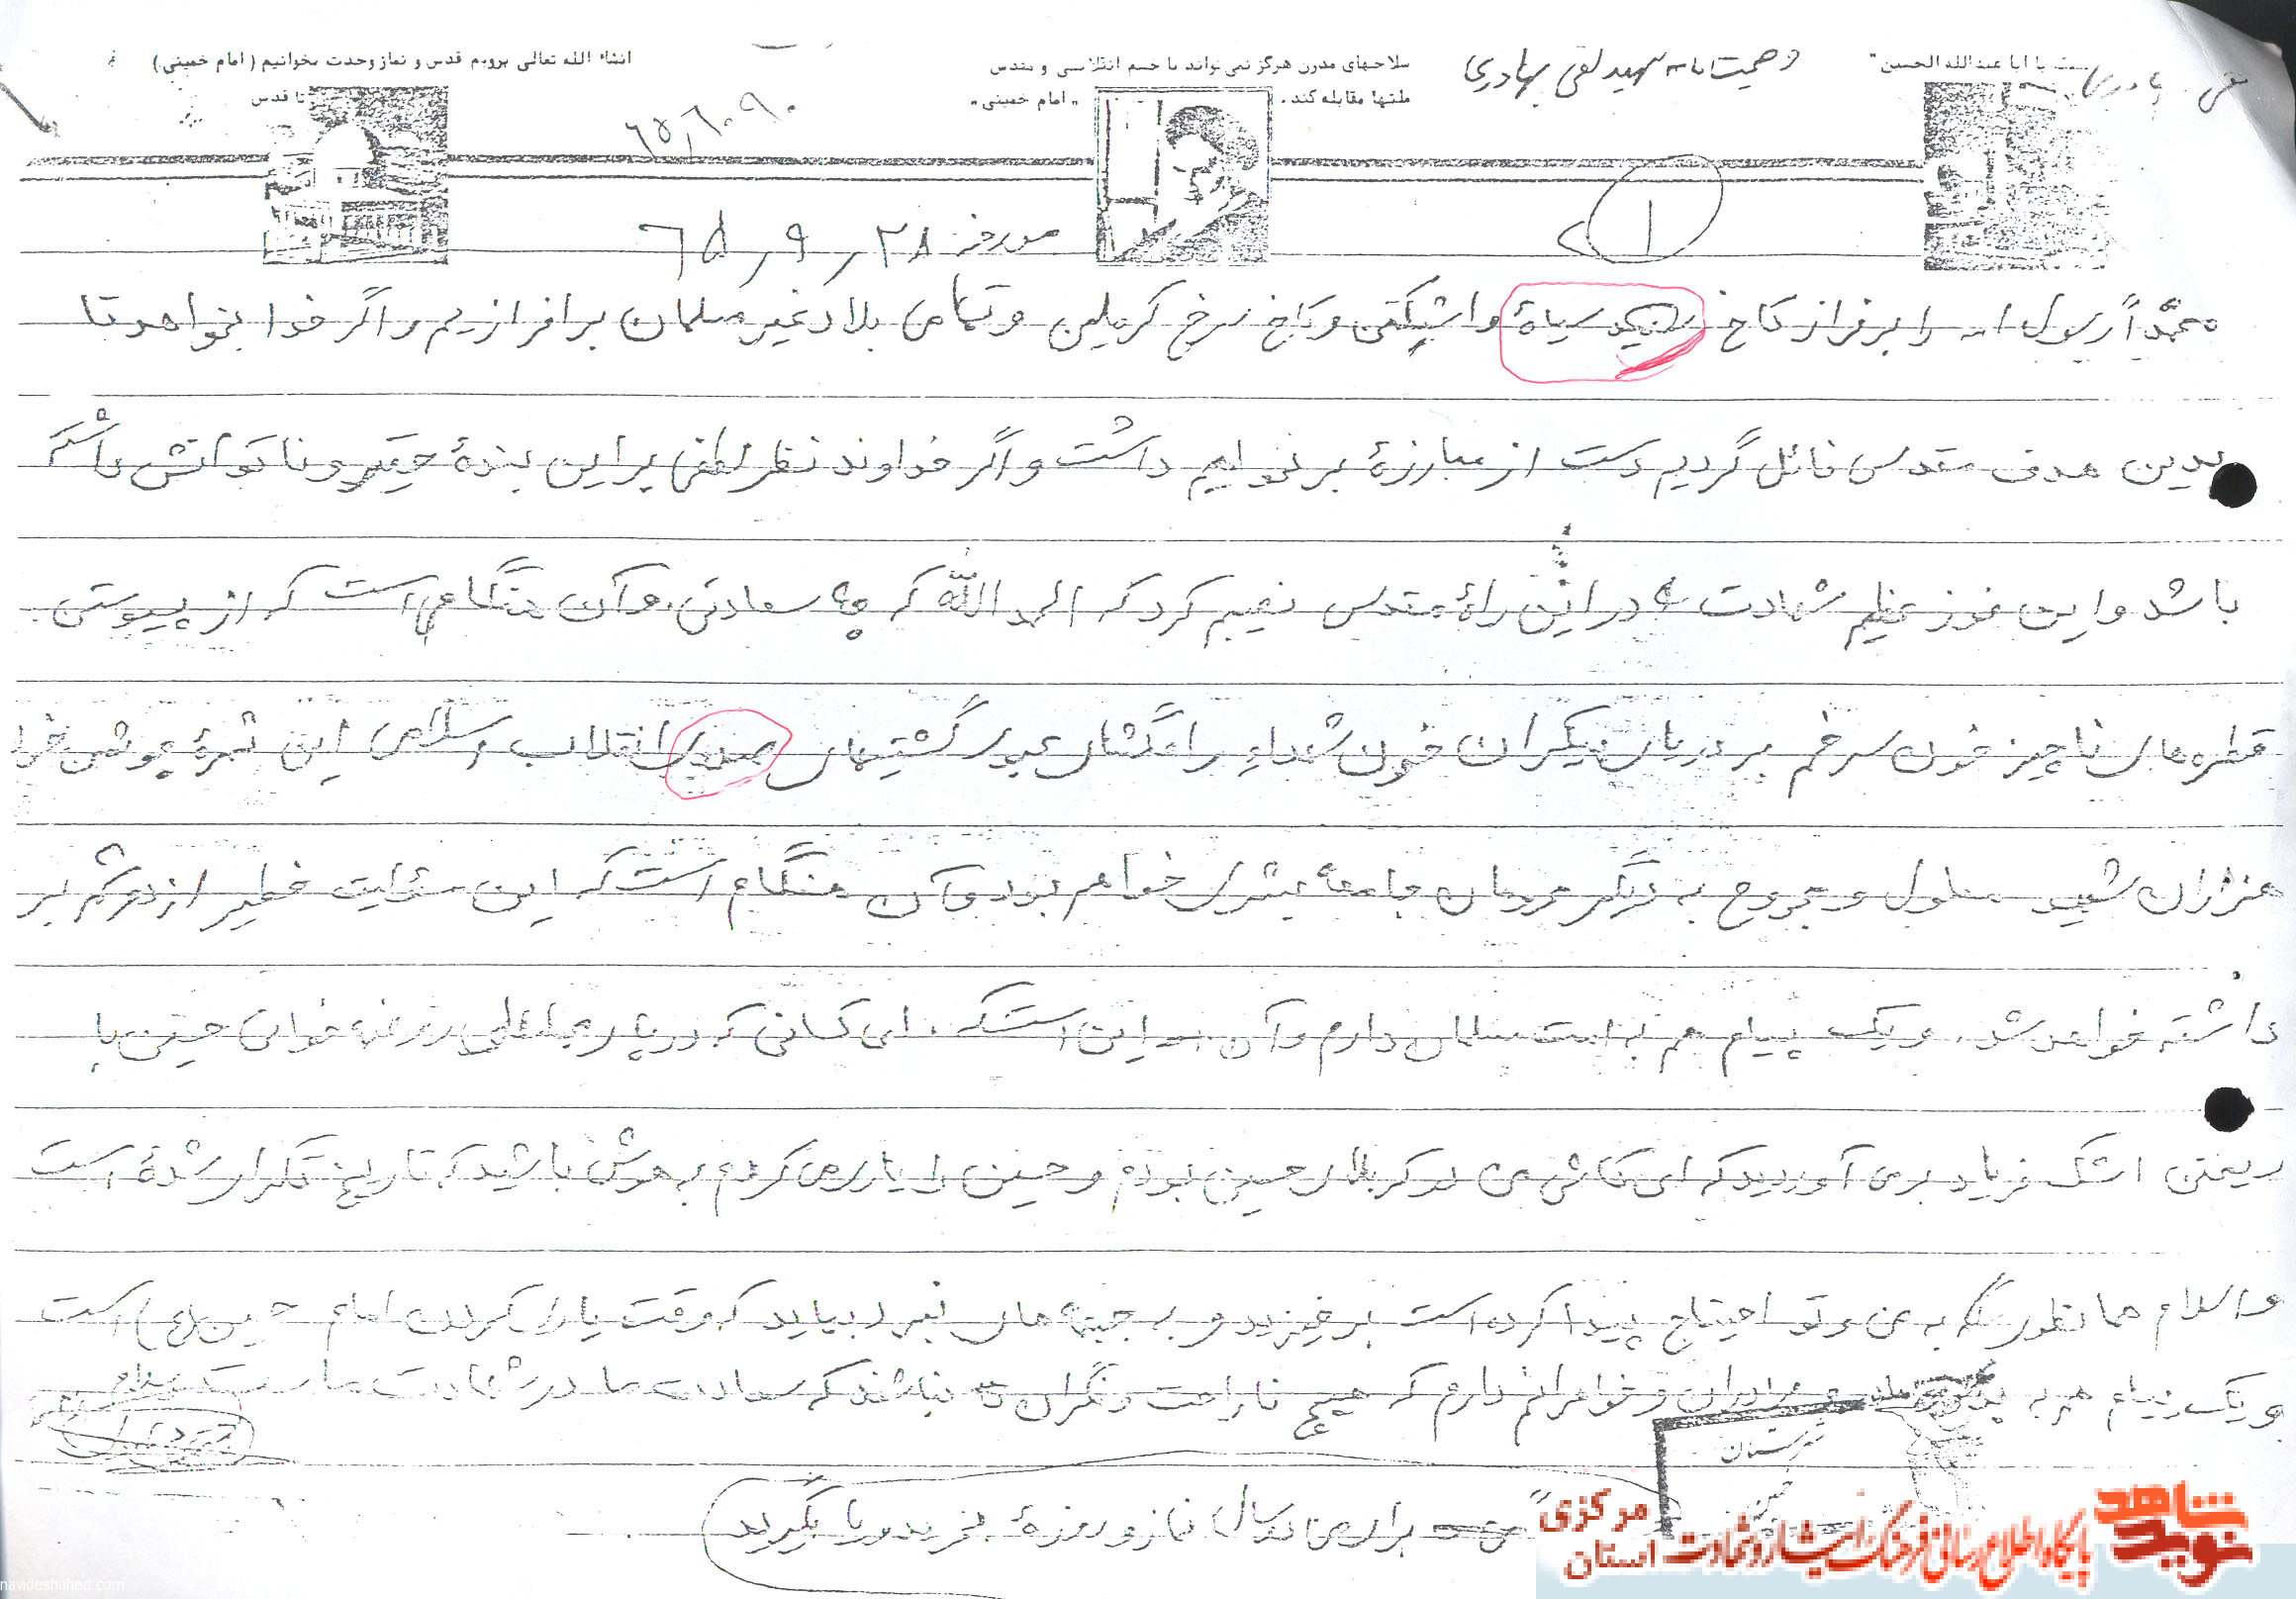 یا ابا عبدالله الحسین"
وصیت نامه شهید تقی بهادری
سلاحهای مدرن هرگز نمی تواند با خشم انقلابی و مقدس
ملتها مقابله کند. "امام خمینی"
انشاء الله تعالی برویم قدس و نماز وحدت بخوانیم (امام خمینی)
تا قدس
۱
مورخه ۲۸ / ۹ / ۶۵
محمداً رسول اله را بر فراز کاخ سیاهٔ واشنگتن و کاخ سرخ کرملین و تمامی بلاد غیر مسلمان برافرازیم و اگر خدا بخواهد تا
بدین هدف مقدس نائل گردیم دست از مبارزهٔ بر نخواهیم داشت و اگر خداوند نظر لطفی بر این بندهٔ حقیر و ناتوانش داشته
باشد و این فوز عظیم شهادت در این راهٔ مقدس نصیبم کرد که الحمدالله که چه سعادتی و آن هنگامی است که از پیوستن
قطره‌های ناچیز خون سرخم بر دریای بیکران خون شهداء راهگشای عبور کشتیهای انقلاب اسلامی این ثمرهٔ خون
هزاران شهید معلول و مجروح به دیگر مرزهای جامعهٔ بشری خواهم بود و آن هنگام است که این مسئولیت خطیر از دوشم بر
داشته خواهد شد. و یک پیام هم به امت مسلمان دارم و آن این است که، ای کسانی که در پا خوان حسینی با
ریختن اشک فریاد بر می آوردید که ای کاش من در کربلای حسین بودم و حسین را یاری می کردم به هوش باشید که تاریخ تکرار شدهٔ است
و اسلام همانطور که به من و تو احتیاج پیدا کرده است برخیزید و به جبهه های نبرد بیایید که وقت یاری کردن امام حسین (ع) است
و یک پیام هم به پدر و مادر و برادران و خواهرانم دارم که هیچ ناراحت و نگران نباشند که سعادت ما در شهادت ماست والسلام
شهرستان
خمین
برای من دو سال نماز و روزهٔ بخرید و یا بگیرید
نوید شاهد
پایگاه اطلاع رسانی فرهنگ ایثار و شهادت استان مرکزی
navideshahed.com